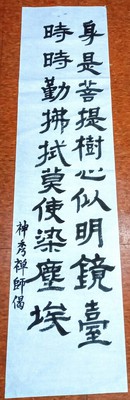 身是菩提樹心似明鏡臺
時時勤拂拭莫使染塵埃
神秀禪師偈